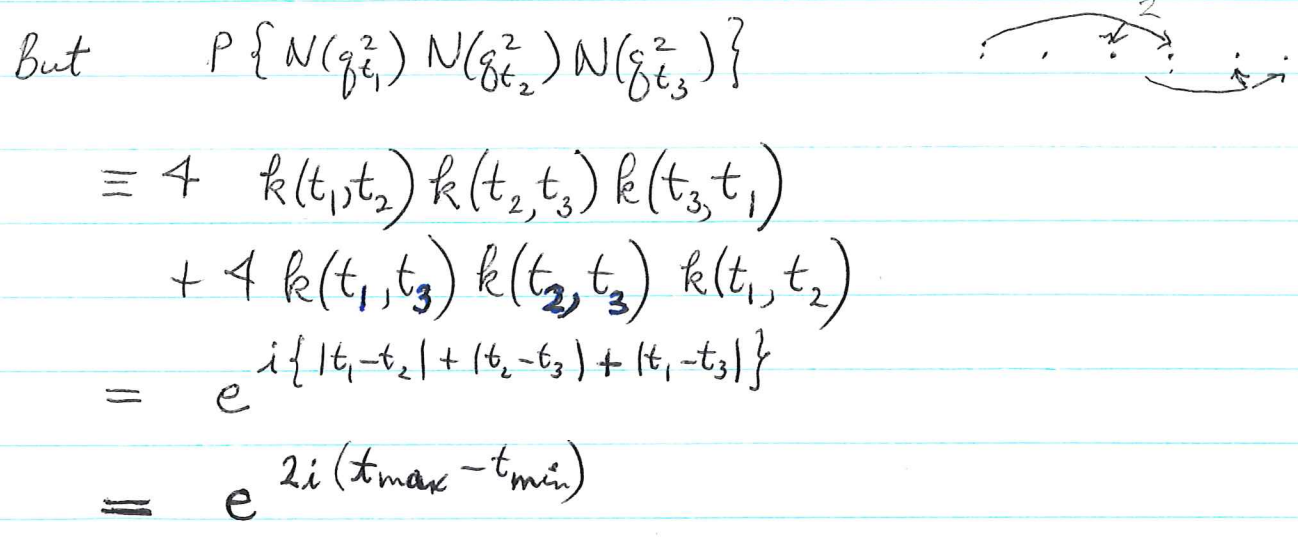 But P{N(q²_{t₁}) N(q²_{t₂}) N(q²_{t₃})} 2
≡ 4 k(t₁,t₂) k(t₂,t₃) k(t₃,t₁)
+ 4 k(t₁,t₃) k(t₂,t₃) k(t₁,t₂)
= e^{i{|t₁-t₂| + |t₂-t₃| + |t₁-t₃|}}
= e^{2i(t_max - t_min)}